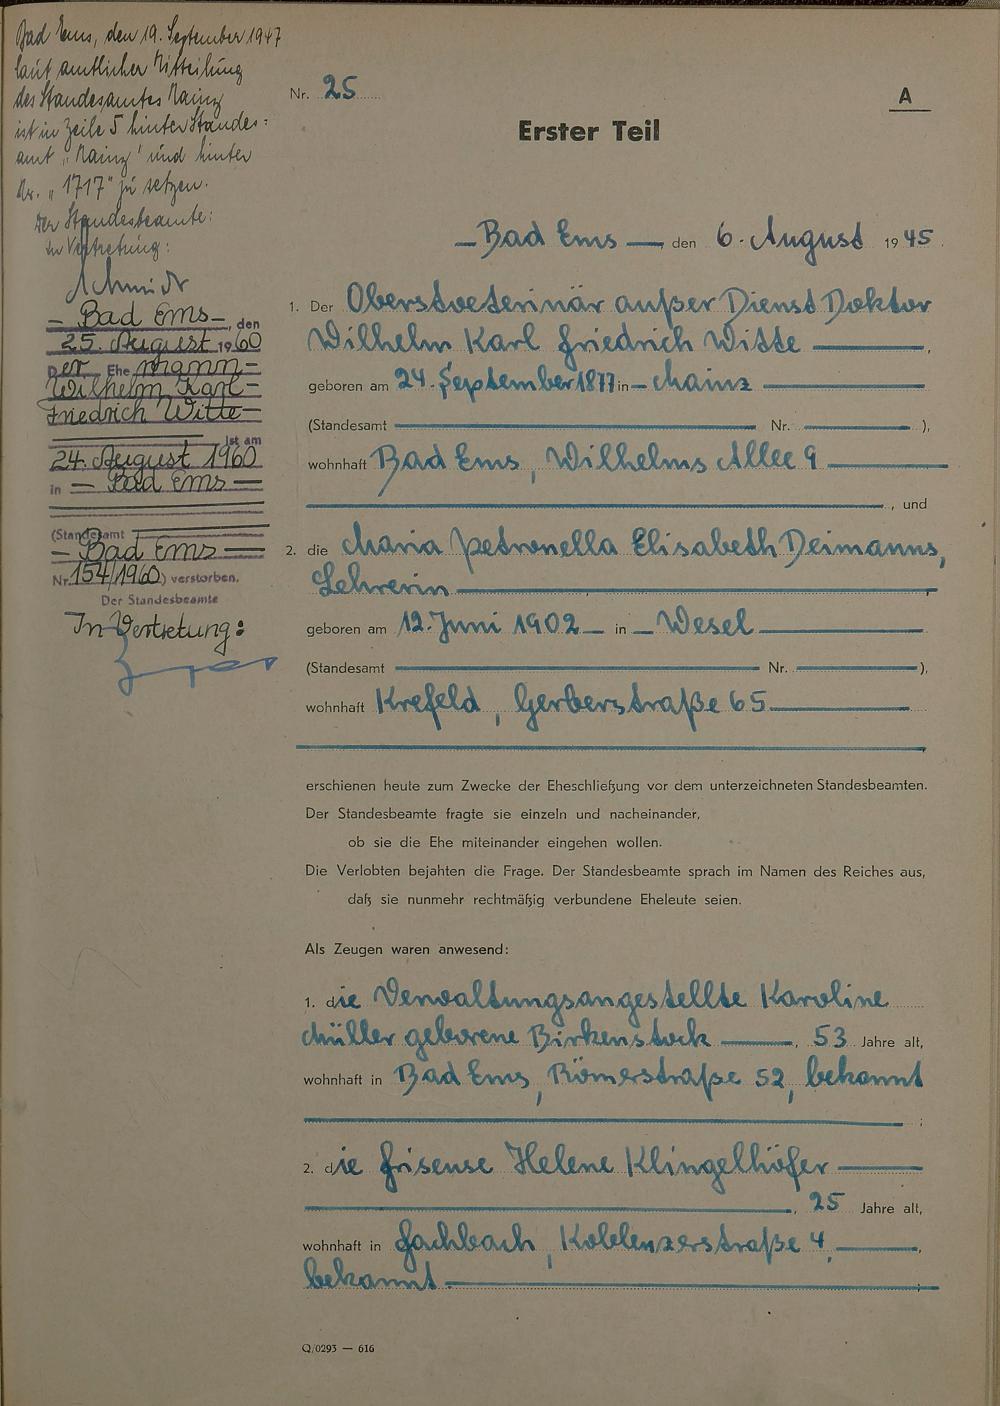 Bad Ems, den 19. September 1947
laut amtlicher Mitteilung
des Standesamtes Mainz
ist in Zeile 5 hinter Standes=
amt „Mainz" und hinter
Nr. „1717" zu setzen.
Der Standesbeamte:
In Vertretung:
Schmidt
— Bad Ems —, den
25. August 1960
Der Ehemann =
Wilhelm Karl =
Friedrich Witte —
ist am
24. August 1960
in — Bad Ems —
(Standesamt
— Bad Ems —
Nr. 154/1960) verstorben.
Der Standesbeamte
In Vertretung:
Nr. 25
A
Erster Teil
— Bad Ems —, den 6. August 1945.
1. Der Oberstveterinär außer Dienst Doktor
Wilhelm Karl Friedrich Witte —,
geboren am 24. September 1877 in — Mainz —
(Standesamt — Nr. —),
wohnhaft Bad Ems, Wilhelms Allee 9 —
—, und
2. die Maria Petronella Elisabeth Deimanns,
Lehrerin —
geboren am 12. Juni 1902 — in — Wesel —
(Standesamt — Nr. —),
wohnhaft Krefeld, Gerberstraße 65 —
erschienen heute zum Zwecke der Eheschließung vor dem unterzeichneten Standesbeamten.
Der Standesbeamte fragte sie einzeln und nacheinander,
ob sie die Ehe miteinander eingehen wollen.
Die Verlobten bejahten die Frage. Der Standesbeamte sprach im Namen des Reiches aus,
daß sie nunmehr rechtmäßig verbundene Eheleute seien.
Als Zeugen waren anwesend:
1. die Verwaltungsangestellte Karoline
Müller geborene Birkenstock —, 53 Jahre alt,
wohnhaft in Bad Ems, Römerstraße 52, bekannt
— ;
2. die Friseuse Helene Klingelhöfer —
—, 25 Jahre alt,
wohnhaft in Fachbach, Koblenzerstraße 4, —,
bekannt. —
Q/0293 — 616